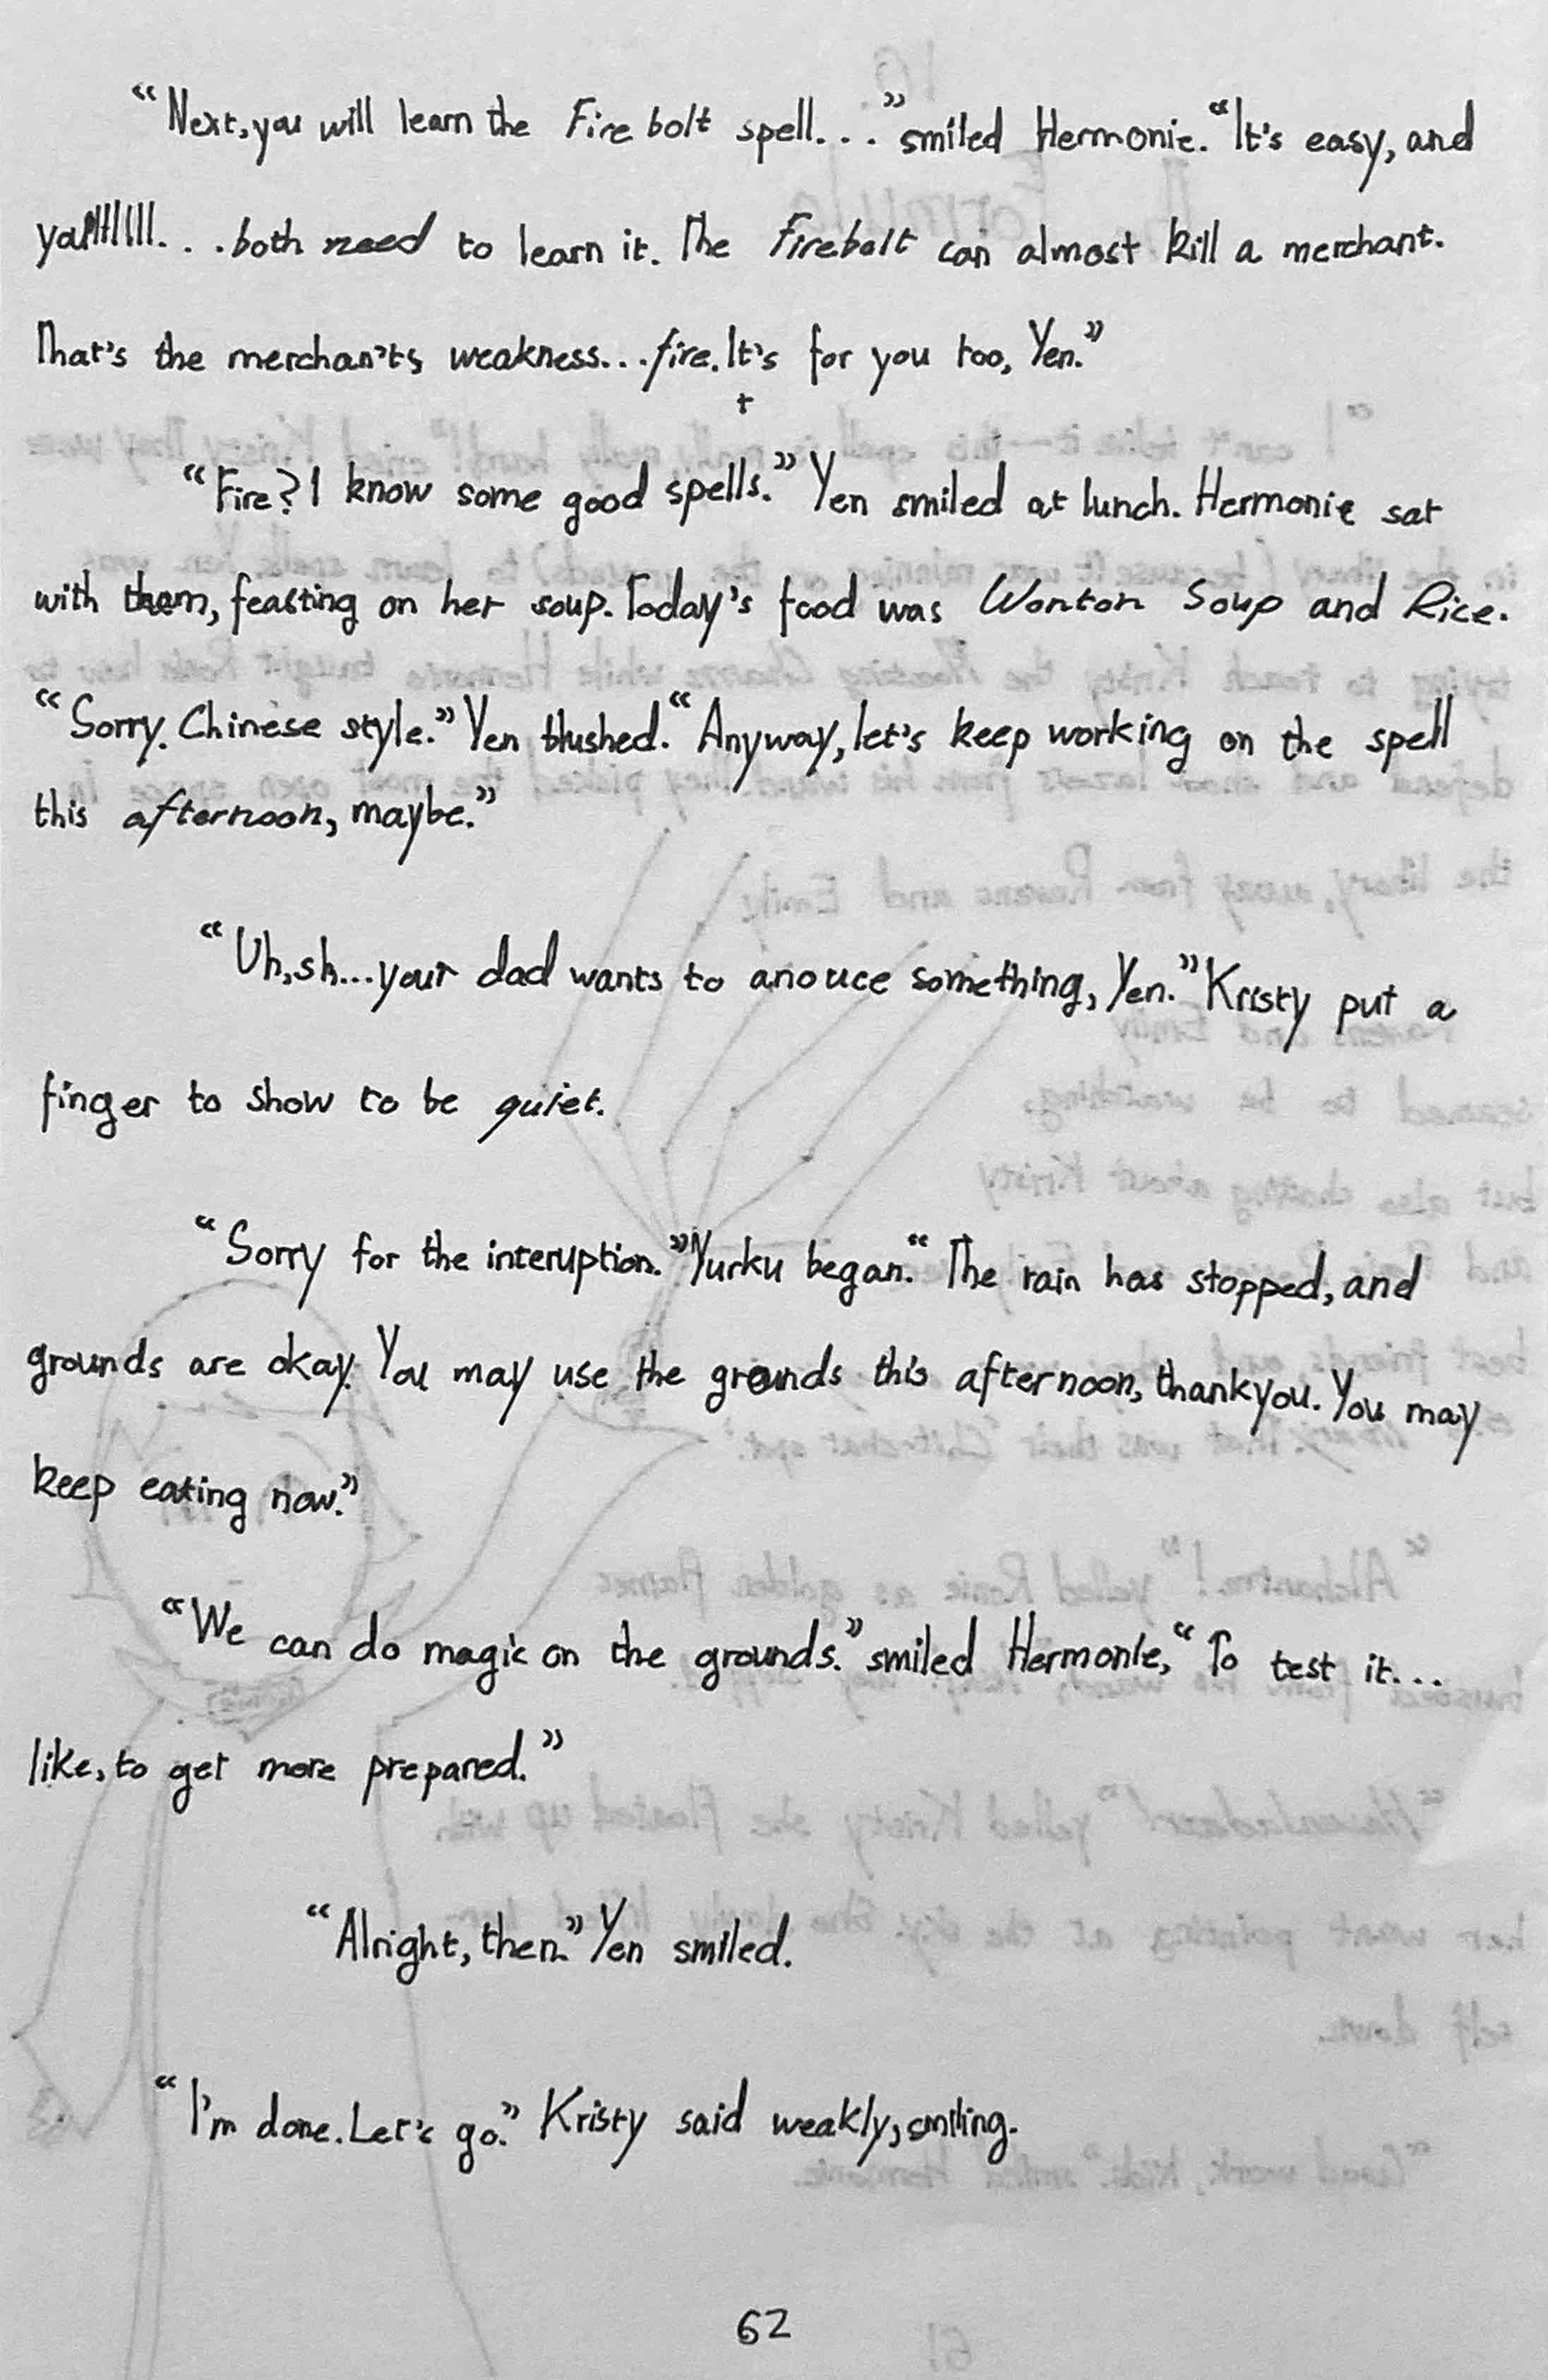 “Next, you will learn the Firebolt spell...” smiled Hermonie. “It's easy, and
you'llllll...both need to learn it. The Firebolt can almost kill a merchant.
That's the merchan'ts weakness...fire. It's for you too, Yen.”
“Fire? I know some good spells.” Yen smiled at lunch. Hermonie sat
with them, feasting on her soup. Today's food was Wonton Soup and Rice.
“Sorry. Chinese style.” Yen blushed. “Anyway, let's keep working on the spell
this afternoon, maybe.”
“Uh, sh...your dad wants to anouce something, Yen.” Kristy put a
finger to show to be quiet.
“Sorry for the interuption.” Yurku began. “The rain has stopped, and
grounds are okay. You may use the grounds this afternoon, thankyou. You may
keep eating now.”
“We can do magic on the grounds.” smiled Hermonie, “To test it...
like, to get more prepared.”
“Alright, then.” Yen smiled.
“I'm done. Let's go.” Kristy said weakly, smiling.
62